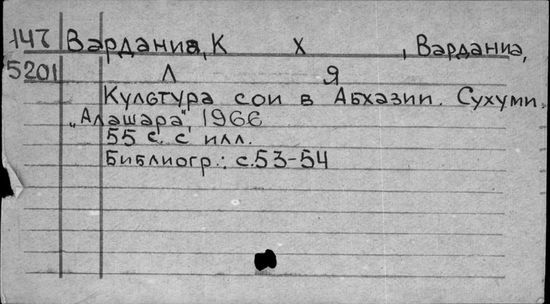 147 Вардания, К Х , Вардания,
5201 Л Я
Культура сои в Абхазии. Сухуми.
„Алашара", 1966
55 с. с илл.
Библиогр.: с.53-54